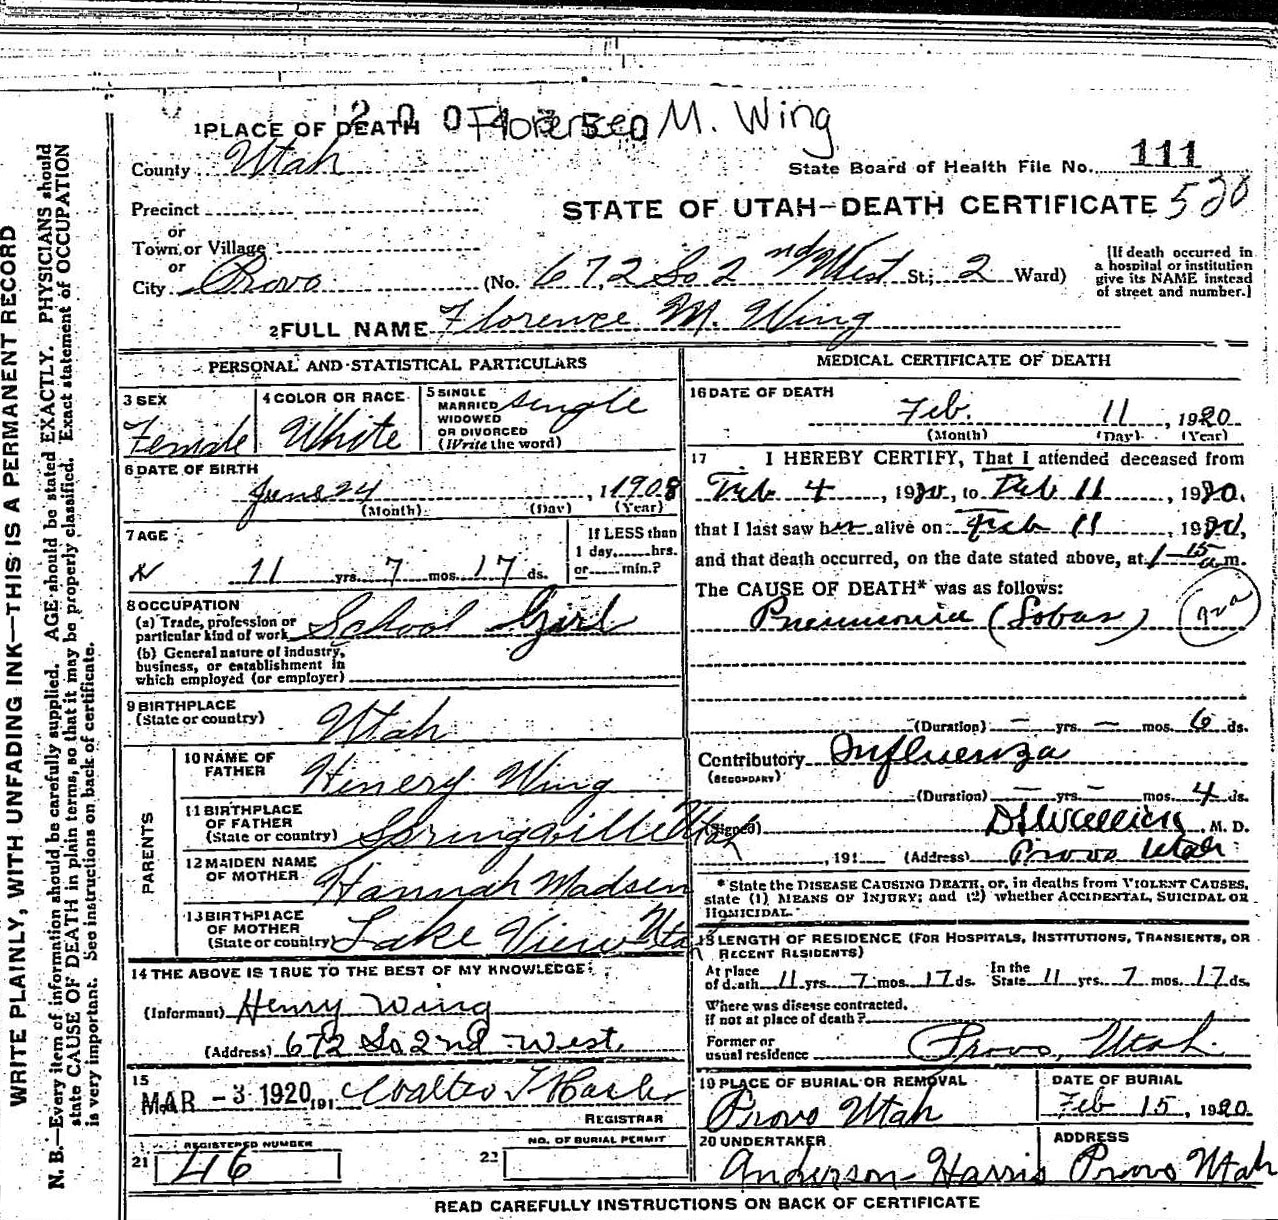 Florence M. Wing
1 PLACE OF DEATH
County Utah
State Board of Health File No. 111
Precinct
528
STATE OF UTAH—DEATH CERTIFICATE
or
Town or Village
or
City Provo (No. 672 So 2nd West St.; 2 Ward)
[If death occurred in
a hospital or institution
give its NAME instead
of street and number.]
2 FULL NAME Florence M. Wing
PERSONAL AND STATISTICAL PARTICULARS
3 SEX
Female
4 COLOR OR RACE
White
5 SINGLE
MARRIED
WIDOWED
OR DIVORCED
(Write the word)
Single
6 DATE OF BIRTH
June 24, 1908
(Month) (Day) (Year)
7 AGE
11 yrs. 7 mos. 17 ds.
If LESS than
1 day, hrs.
or min.?
8 OCCUPATION
(a) Trade, profession or
particular kind of work School Girl
(b) General nature of industry,
business, or establishment in
which employed (or employer)
9 BIRTHPLACE
(State or country) Utah
PARENTS
10 NAME OF
FATHER Henery Wing
11 BIRTHPLACE
OF FATHER
(State or country) Springville Utah
12 MAIDEN NAME
OF MOTHER Hannah Madsen
13 BIRTHPLACE
OF MOTHER
(State or country) Lake View Utah
14 THE ABOVE IS TRUE TO THE BEST OF MY KNOWLEDGE:
(Informant) Henry Wing
(Address) 672 So 2nd West.
15
MAR -3 1920 191
REGISTRAR
REGISTERED NUMBER
21 46
NO. OF BURIAL PERMIT
22
MEDICAL CERTIFICATE OF DEATH
16 DATE OF DEATH
Feb. 11, 1920
(Month) (Day) (Year)
17 I HEREBY CERTIFY, That I attended deceased from
Feb 4, 1920, to Feb 11, 1920,
that I last saw her alive on Feb 11, 1920,
and that death occurred, on the date stated above, at 1 15 a m.
The CAUSE OF DEATH* was as follows:
Pneumonia (Lobar)
(Duration) — yrs. — mos. 6 ds.
Contributory Influenza
(SECONDARY)
(Duration) — yrs. — mos. 4 ds.
(Signed) M. D.
, 191 (Address) Provo Utah
*State the DISEASE CAUSING DEATH, or, in deaths from VIOLENT CAUSES,
state (1) MEANS OF INJURY; and (2) whether ACCIDENTAL, SUICIDAL OR
HOMICIDAL.
18 LENGTH OF RESIDENCE (FOR HOSPITALS, INSTITUTIONS, TRANSIENTS, OR
RECENT RESIDENTS)
At place
of death 11 yrs. 7 mos. 17 ds.
In the
State 11 yrs. 7 mos. 17 ds.
Where was disease contracted,
if not at place of death?
Former or
usual residence Provo, Utah.
19 PLACE OF BURIAL OR REMOVAL
Provo Utah
DATE OF BURIAL
Feb 15, 1920
20 UNDERTAKER
Anderson Harris
ADDRESS
Provo Utah
READ CAREFULLY INSTRUCTIONS ON BACK OF CERTIFICATE
WRITE PLAINLY, WITH UNFADING INK—THIS IS A PERMANENT RECORD
N. B.—Every item of information should be carefully supplied. AGE should be stated EXACTLY. PHYSICIANS should
state CAUSE OF DEATH in plain terms, so that it may be properly classified. Exact statement of OCCUPATION
is very important. See instructions on back of certificate.